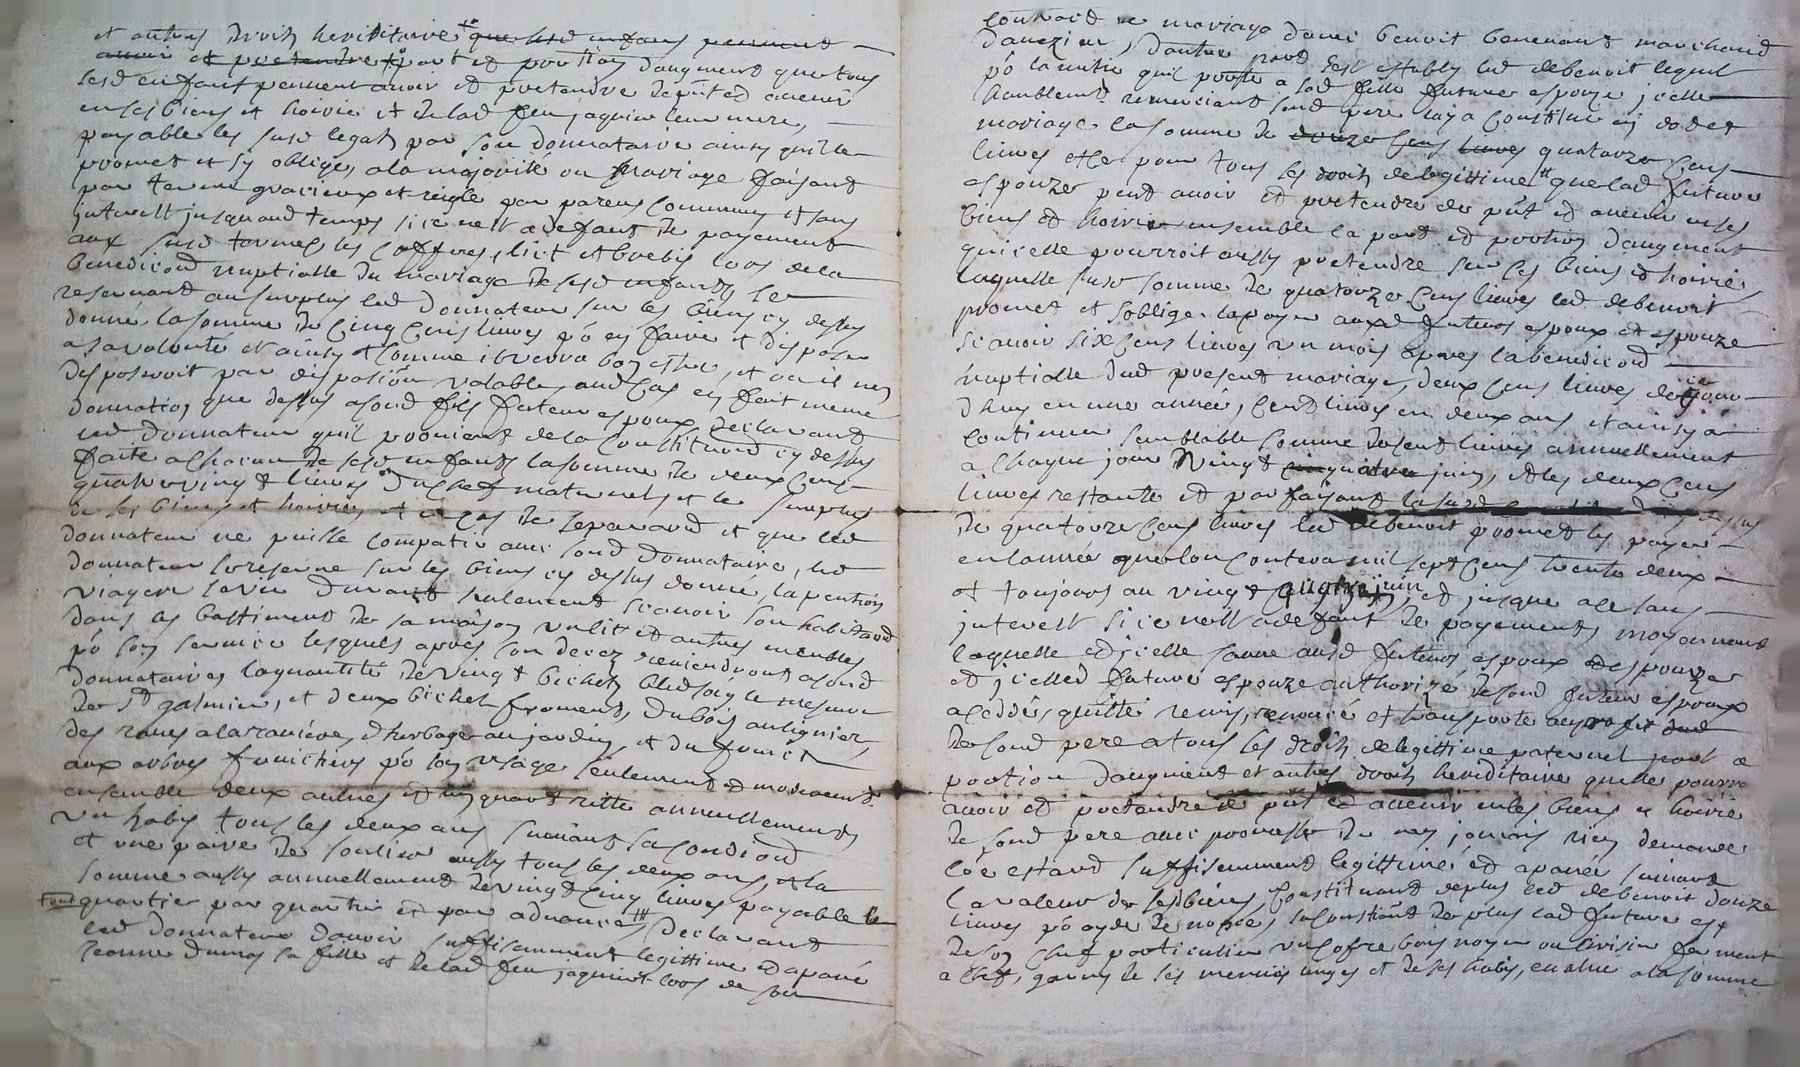 et autres droits hereditaire que lesd enfans peuvent
avoir et pretendre part et portion daugment que tous
lesd enfans peuvent avoir et pretendre de put et avenir
en ses biens et hoirie et de lad feu jaquier leur mere,
payable les susd legats par son donnataire ainsy quil le
promet et sy oblige, a la majorité ou mariage faisant
par terme gracieux et reiglé par parens communs et sans
interest jusquaud temps si ce nest a defaut de payement
aux susd termes les coffres, lict et brebis lors de la
benediction nuptialle du mariage de sesd enfants, se
reservant au surplus led donnateur sur les biens cy dessus
donné la somme de cinq cens livres pō en faire et disposer
a sa volonté et ainsy et comme il verra bon estre, et ou il nen
disposeroit par disposiōn valable, aud cas en fait meme
donnation que dessus a sond fils futeur espoux declarant
led donnateur quil provient de la constitution cy dessus
faite a chacun de sesd enfants la somme de deux cens
quatre vingt livres du chef maternel, et le surplus
en ses biens et hoiries et en cas de separation et que led
donnateur ne puisse compatir avec sond donnataire, led
donnateur se reserve sur les biens cy dessus donné, la pention
viagere sa vie durant seulement scavoir son habitation
dans les bastiment de sa maison un lit et autres meubles
pō son service lesquels apres son decez reviendront a sond
donnataire, la quantité de vingt bichets bled soigle mesure
de St galmier, et deux bichet froment, du bois au lignier,
des raves a la raviere, dherbage au jardin, et du fruict
aux arbres fruichers pō son usage seulement et moderement
ensemble deux autres et un quart ritte annuellement
un habis tous les deux ans suivant sa condition
et une paire de soulier aussy tous les deux ans, et la
somme aussy annuellement de vingt cinq livres payable
tout quartier par quartier et par advance, declarant
led donnateur davoir suffisamment legittimé et apané
jeanne dumas sa fille et de lad feu jaquier lors de son
contract de mariage avec benoit benevent marchand
davezieu, dautre part sest estably led debenoit lequel
pō lamitié quil porte a lad fille future espouze icelle
humblement remerciant sond pere luy a constitué en dot et
mariage la somme de douze cens livres quatorze cens
livres et ce pour tous les droits de legittime que lad future
espouze peut avoir et pretendre de put et avenir en ses
biens et hoirie ensemble la part et portion daugment
quicelle pourroit aussy pretendre sur les biens et hoirie,
laquelle susd somme de quatorze cens livres led debenoit
promet et soblige la payer auxd futeurs espoux et espouze
scavoir six cens livres un mois apres la benediction
nuptialle dud present mariage, deux cens livres de ce jour
dhuy en une année, cent livres en deux ans et ainsy a
continuer semblable somme de cent livres annuellement
a chaque jour vingt quatre juin, et les deux cens
livres restante et parfaisant la susd
de quatorze cens livres led debenoit promet les payer
en lannée que lon contera mil sept cens trente deux
et toujours au vingt quatre juin, et jusque a ce sans
interest si ce nest a defaut de payement, moyennant
laquelle et icelle sauve ausd futeurs espoux et espouze
et icelled future espouze authorizé de sond futeur espoux
a ceddé, quitté, remis, renoncé et transporté au profit dud
de sond pere a tous les droits de legittime paternel part et
portion daugment et autres droits hereditaire quelle pourra
avoir et pretendre de put et avenir en les biens et hoirie
de sond pere avec promesse de ny jamais rien demander
cōe estant suffisemment legittimé et apanée suivant
la valeur de sesd biens, constituant de plus led debenoit douze
livres pō ayde de nopces, se constituant de plus lad future esp
de son chef particulier un cofre bois noyer ou cerisier fermant
a clef, garny de ses menus linges et de ses habis, en value a la somme